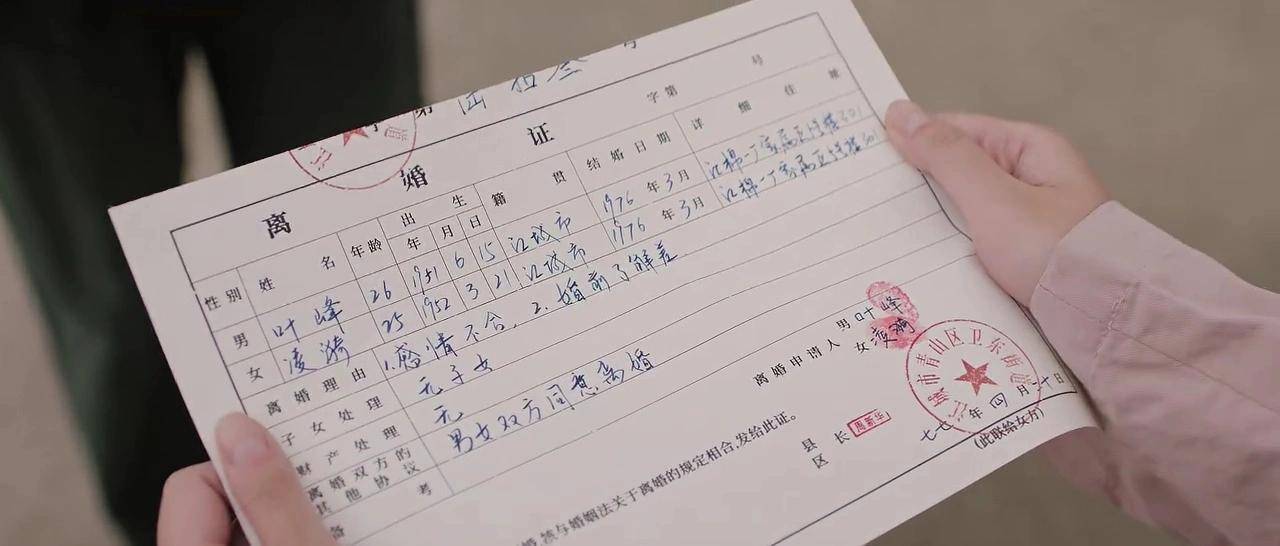 字第 陆拾叁 号
离婚证
字第 号
性别 姓名 年龄 出生 年 月 日 籍贯 结婚日期 详细住址
男 叶峰 26 1951 6 15 江城市 1976年3月 江棉一厂家属区 301
女 凌漪 25 1952 3 21 江城市 1976年3月 江棉一厂家属区 301
离婚理由 1.感情不合、2.婚前了解差
子女处理 无子女
财产处理 无
离婚双方的其他协议 男女双方同意离婚
备考
离婚申请人 男 叶峰
女 凌漪
婚,核与婚姻法关于离婚的规定相合,发给此证。
县 区 长 周新华
江城市青山区卫东街道
七七年四月 十日
(此联给女方)